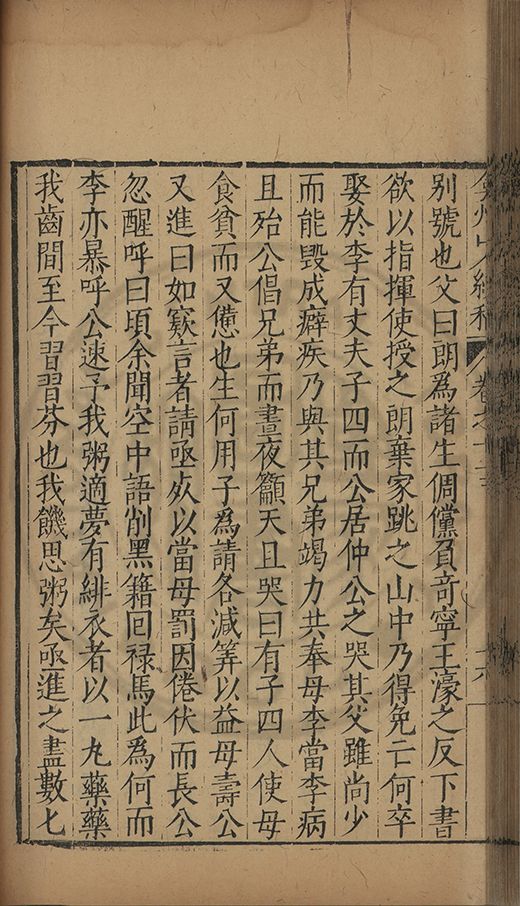 弇州山人續稿 卷之十
別號也父曰朗爲諸生倜儻負奇寧王濠之反下書
欲以指揮使授之朗棄家跳之山中乃得免亡何卒
娶於李有丈夫子四而公居仲公之哭其父雖尚少
而能毀成癖疾乃與其兄弟竭力共奉母李當李病
且殆公倡兄弟而晝夜籲天且哭曰有子四人使母
食貧而又憊也生何用子爲請各減筭以益母壽公
又進曰如窾言者請亟死以當母罰因倦伏而長公
忽醒呼曰頃余聞空中語削黑籍囘祿馬此爲何而
李亦暴呼公速予我粥適夢有緋衣者以一丸藥藥
我齒間至今習習芬也我饑思粥矣亟進之盡數七